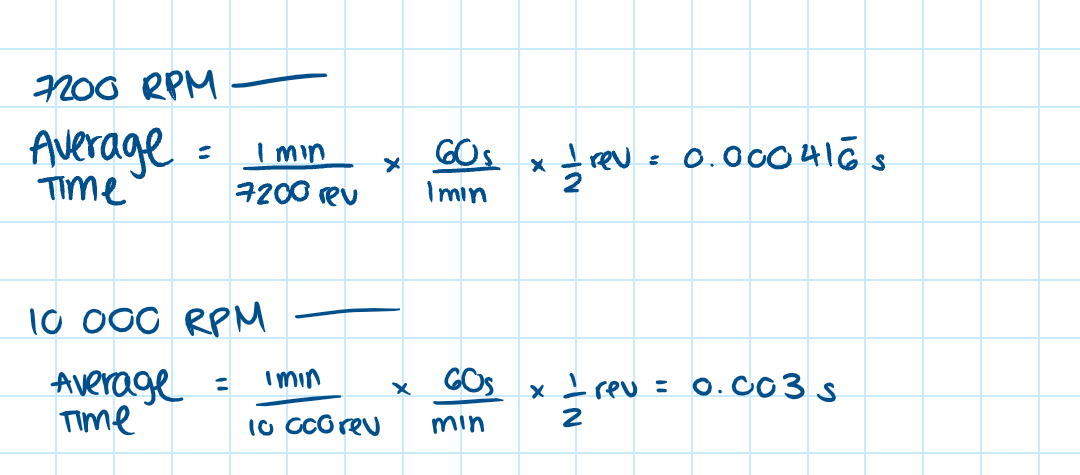 7200 RPM
Average Time = 1 min / 7200 rev × 60s / 1 min × 1/2 rev = 0.000416̅ s
10 000 RPM
Average Time = 1 min / 10 000 rev × 60s / min × 1/2 rev = 0.003 s